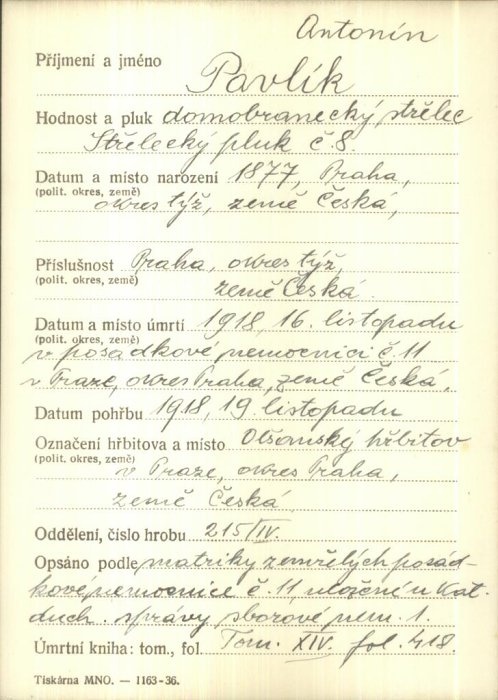 Antonín
Příjmení a jméno Pavlík
Hodnost a pluk domobranecký střelec
Střelecký pluk č. 8.
Datum a místo narození 1877, Praha,
(polit. okres, země)
okres týž, země Česká,
Příslušnost Praha, okres týž,
(polit. okres, země)
země Česká.
Datum a místo úmrtí 1918, 16. listopadu
(polit. okres, země)
v posádkové nemocnici č. 11
v Praze, okres Praha, země Česká,
Datum pohřbu 1918, 19. listopadu
Označení hřbitova a místo Olšanský hřbitov
(polit. okres, země)
v Praze, okres Praha,
země Česká
Oddělení, číslo hrobu 215/IV.
Opsáno podle matriky zemřelých posád-
kové nemocnice č. 11, uložení u Kat.
duch. správy sborové nem. 1.
Úmrtní kniha: tom., fol. Tom. XIV. fol. 418.
Tiskárna MNO. — 1163-36.